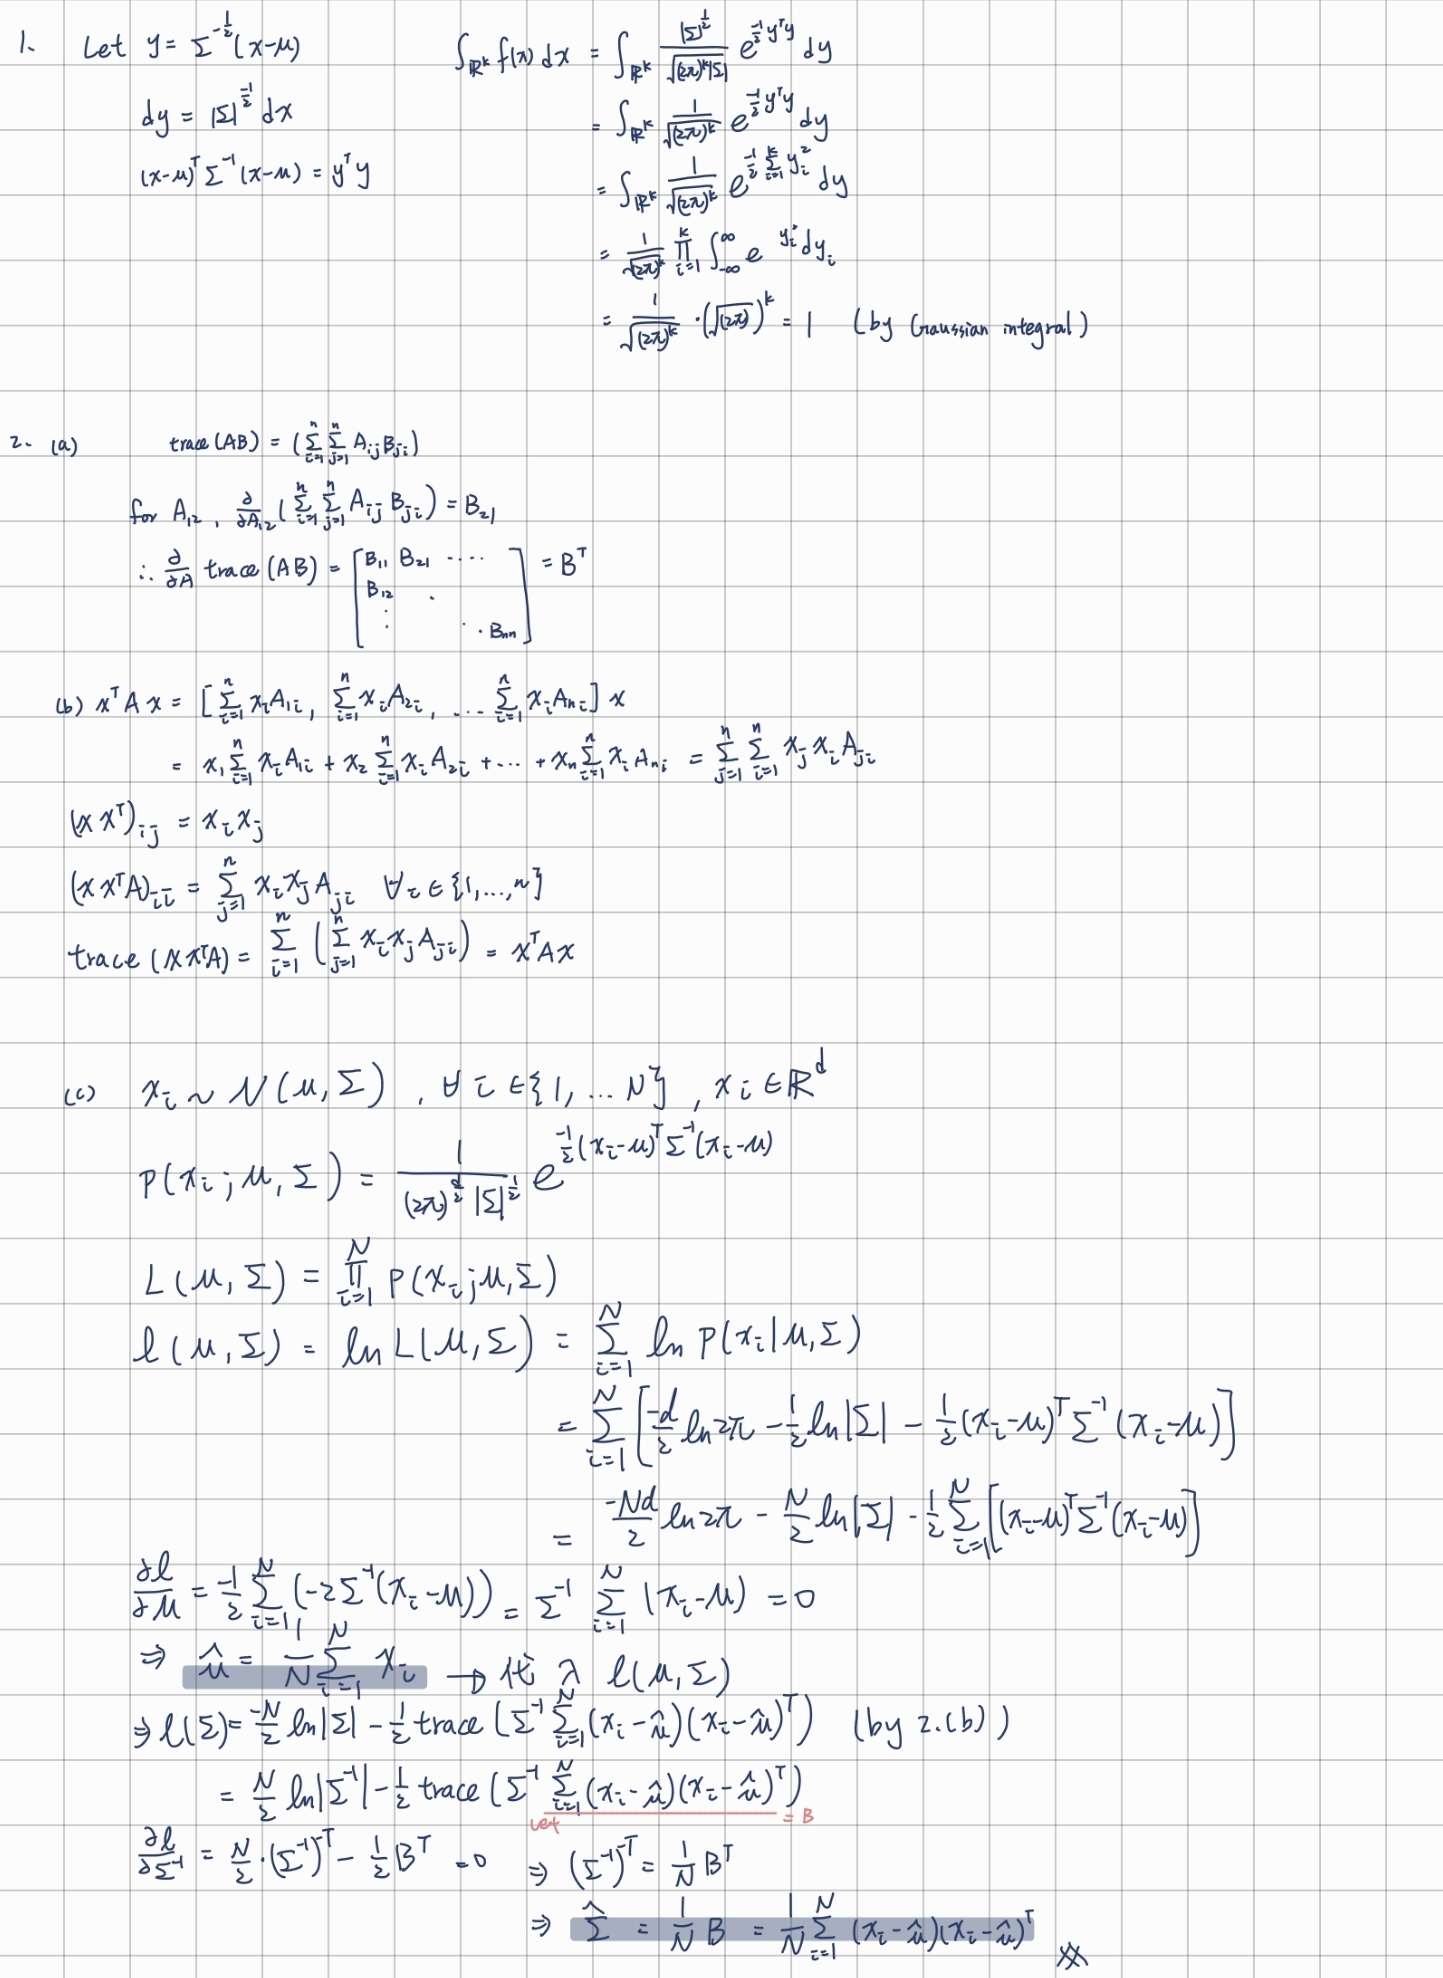 1. Let y = Σ^{-1/2}(x-μ)    ∫_{ℝ^k} f(x) dx = ∫_{ℝ^k} |Σ|^{1/2} / √((2π)^k|Σ|) e^{-1/2 y^T y} dy
dy = |Σ|^{-1/2} dx    = ∫_{ℝ^k} 1/√((2π)^k) e^{-1/2 y^T y} dy
(x-μ)^T Σ^{-1} (x-μ) = y^T y    = ∫_{ℝ^k} 1/√((2π)^k) e^{-1/2 Σ_{i=1}^k y_i^2} dy
= 1/√((2π)^k) ∏_{i=1}^k ∫_{-∞}^{∞} e^{y_i^2} dy_i
= 1/√((2π)^k) · (√(2π))^k = 1 (by Gaussian integral)
2. (a) trace(AB) = (Σ_{i=1}^n Σ_{j=1}^n A_{ij} B_{ji})
for A_{12}, ∂/∂A_{12} (Σ_{i=1}^n Σ_{j=1}^n A_{ij} B_{ji}) = B_{21}
∴ ∂/∂A trace(AB) = [B_{11} B_{21} ···· ; B_{12} · ; ⋮ ·. B_{nn}] = B^T
(b) x^T A x = [Σ_{i=1}^n x_i A_{1i}, Σ_{i=1}^n x_i A_{2i}, ... Σ_{i=1}^n x_i A_{ni}] x
= x_1 Σ_{i=1}^n x_i A_{1i} + x_2 Σ_{i=1}^n x_i A_{2i} + ... + x_n Σ_{i=1}^n x_i A_{ni} = Σ_{j=1}^n Σ_{i=1}^n x_j x_i A_{ji}
(x x^T)_{ij} = x_i x_j
(x x^T A)_{ii} = Σ_{j=1}^n x_i x_j A_{ji} ∀i ∈ {1,...,n}
trace(x x^T A) = Σ_{i=1}^n (Σ_{j=1}^n x_i x_j A_{ji}) = x^T A x
(c) x_i ~ N(μ, Σ), ∀ i ∈ {1, ... N}, x_i ∈ ℝ^d
P(x_i ; μ, Σ) = 1 / ((2π)^{d/2} |Σ|^{1/2}) e^{-1/2 (x_i-μ)^T Σ^{-1} (x_i-μ)}
L(μ, Σ) = ∏_{i=1}^N P(x_i ; μ, Σ)
l(μ, Σ) = ln L(μ, Σ) = Σ_{i=1}^N ln P(x_i | μ, Σ)
= Σ_{i=1}^N [-d/2 ln 2π - 1/2 ln|Σ| - 1/2 (x_i-μ)^T Σ^{-1} (x_i-μ)]
= -Nd/2 ln 2π - N/2 ln|Σ| - 1/2 Σ_{i=1}^N [(x_i-μ)^T Σ^{-1} (x_i-μ)]
∂l/∂μ = -1/2 Σ_{i=1}^N (-2Σ^{-1}(x_i-μ)) = Σ^{-1} Σ_{i=1}^N (x_i-μ) = 0
⇒ μ̂ = 1/N Σ_{i=1}^N x_i → 代入 l(μ, Σ)
⇒ l(Σ) = -N/2 ln|Σ| - 1/2 trace(Σ^{-1} Σ_{i=1}^N (x_i-μ̂)(x_i-μ̂)^T) (by 2.(b))
= N/2 ln|Σ^{-1}| - 1/2 trace(Σ^{-1} Σ_{i=1}^N (x_i-μ̂)(x_i-μ̂)^T)
Let = B
∂l/∂Σ^{-1} = N/2 · (Σ^{-1})^{-T} - 1/2 B^T = 0 ⇒ (Σ^{-1})^{-T} = 1/N B^T
⇒ Σ̂ = 1/N B = 1/N Σ_{i=1}^N (x_i-μ̂)(x_i-μ̂)^T